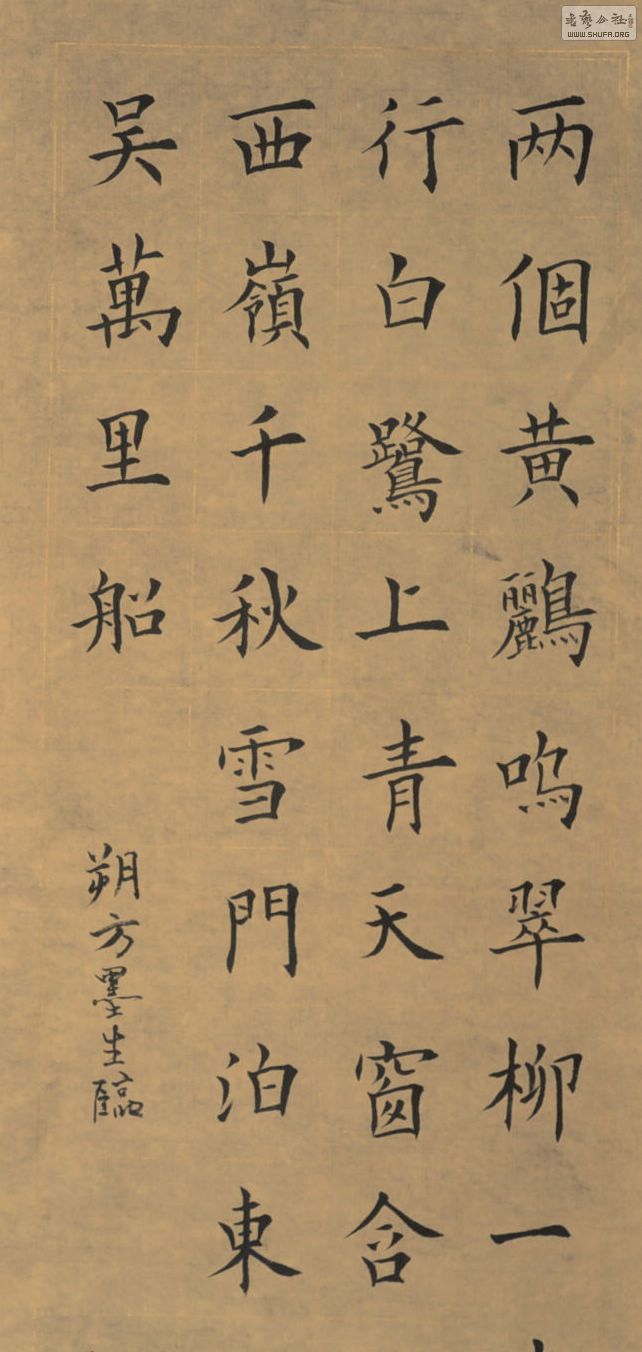 两個黄鸝嗚翠柳一
行白鷺上青天窗含
西嶺千秋雪門泊東
吴萬里船
朔方墨生臨
書藝公社
WWW.SHUFA.ORG